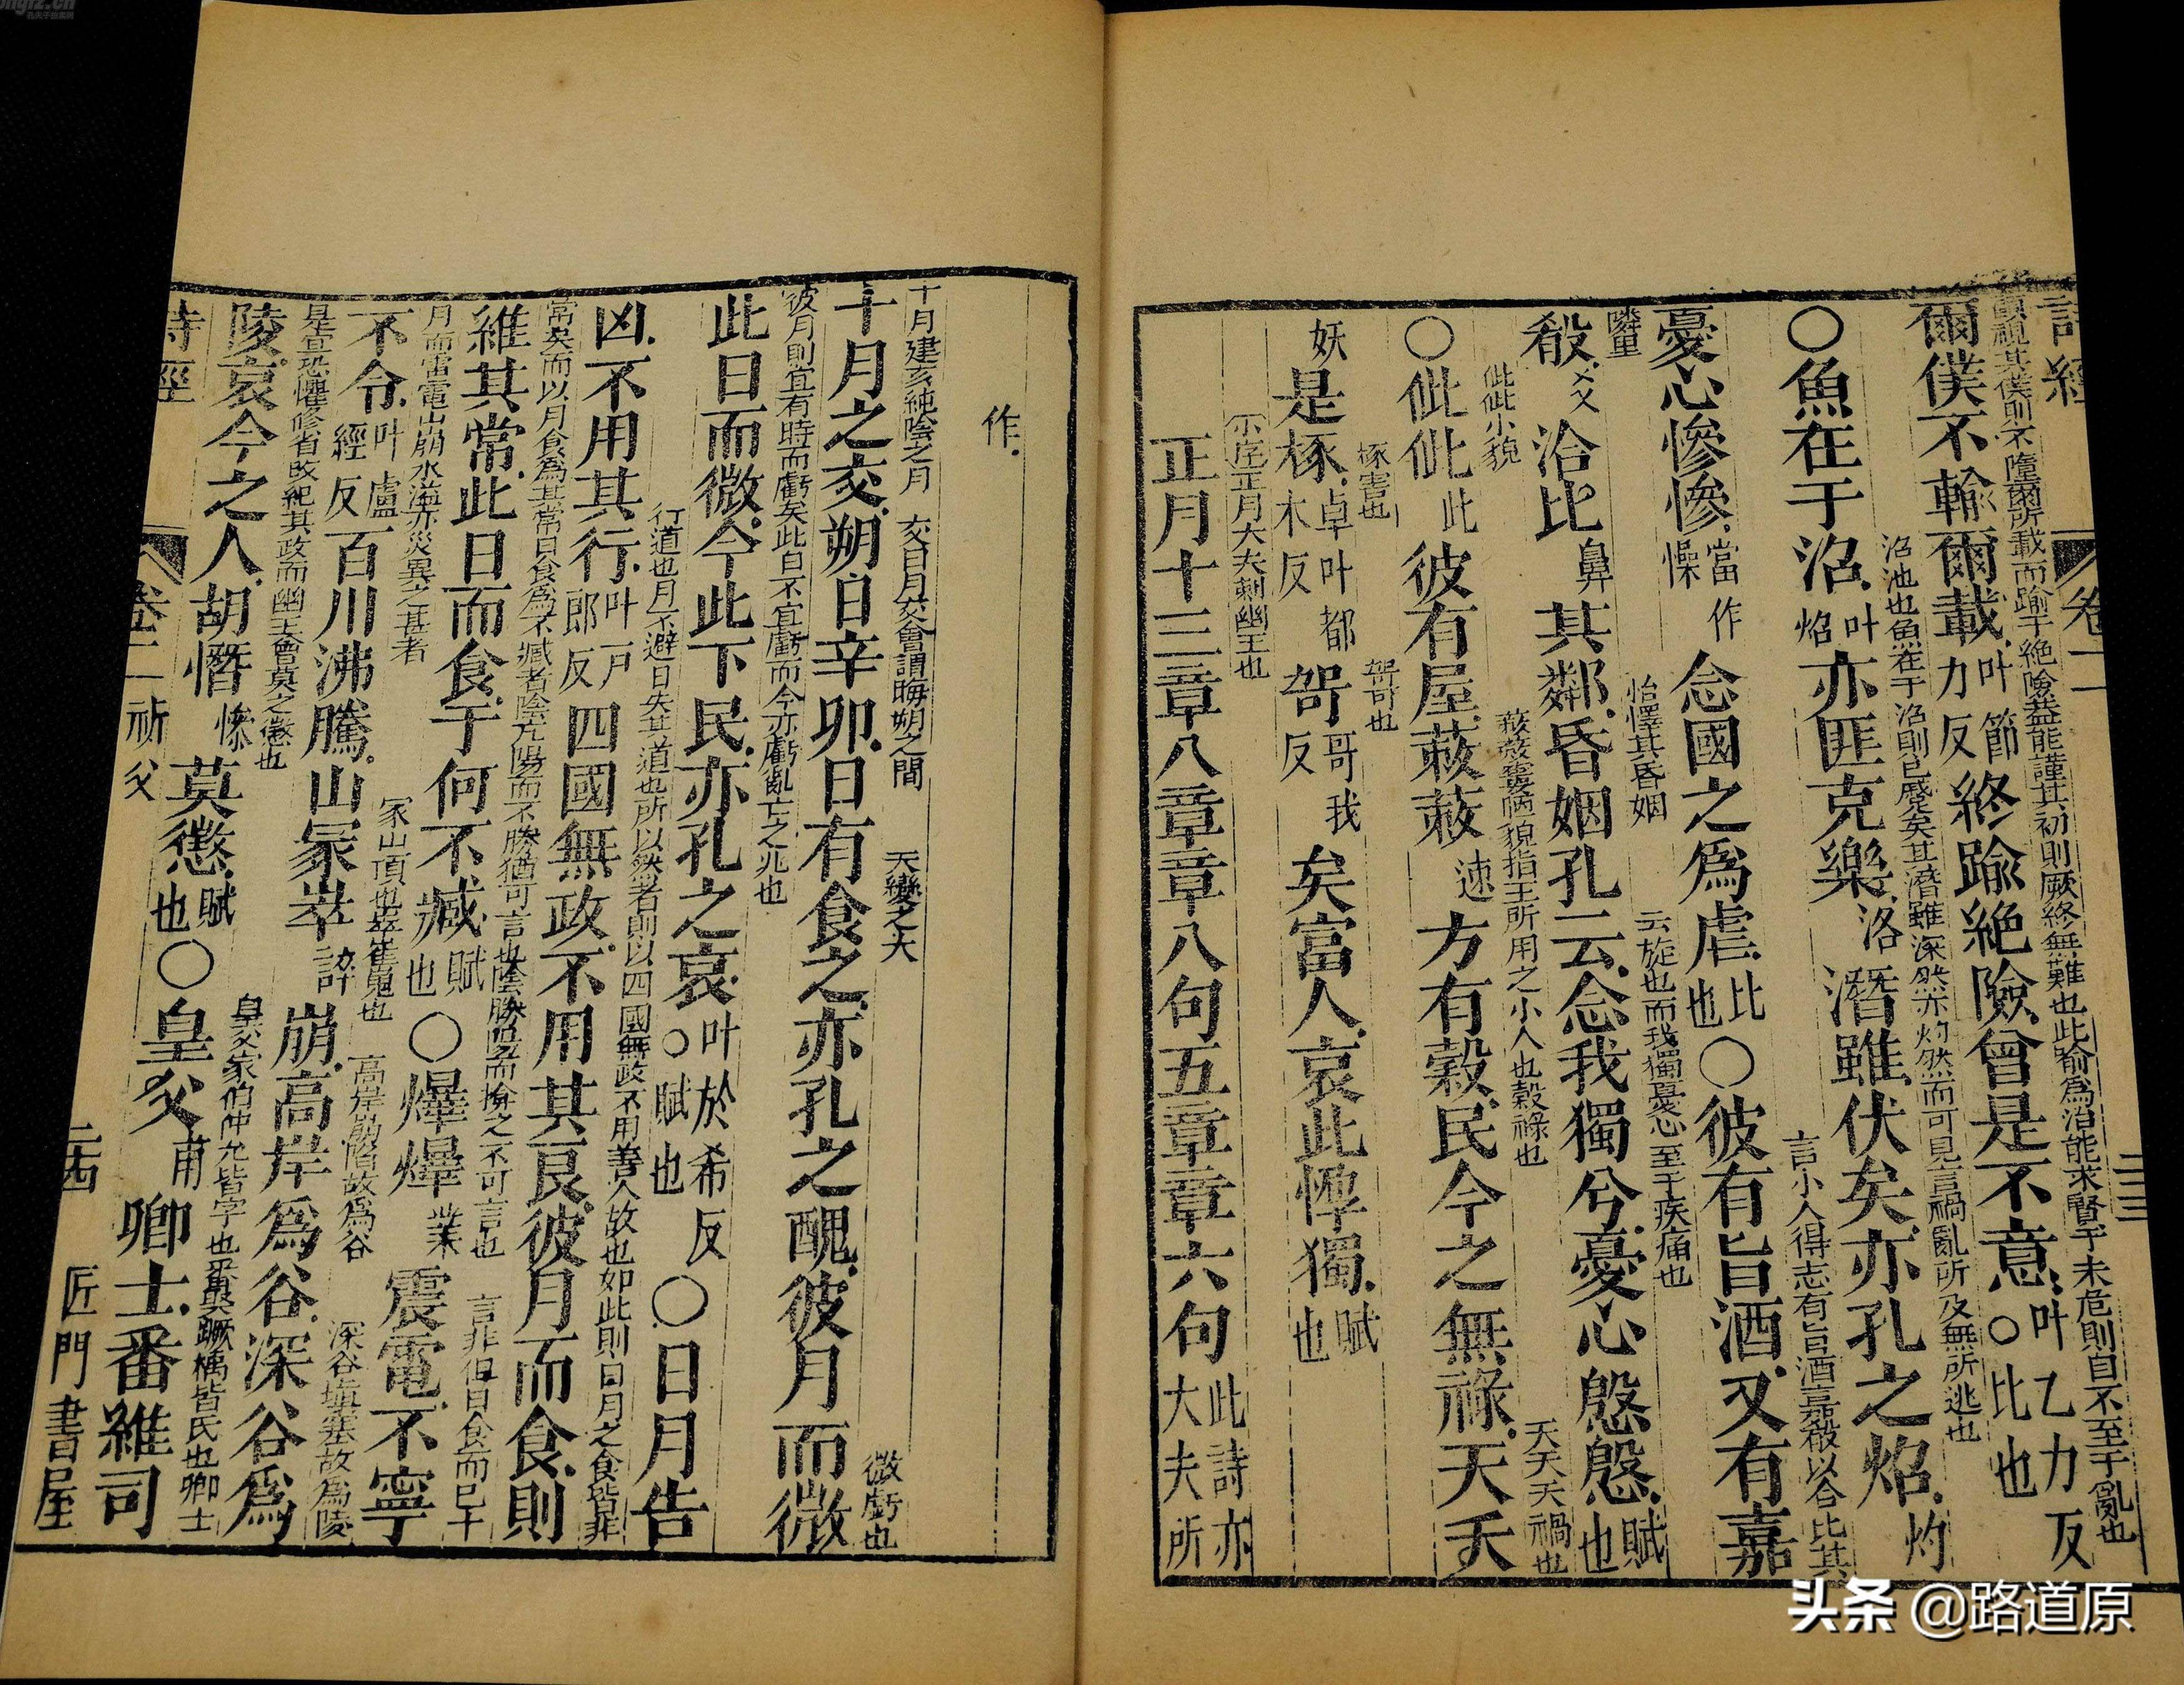 詩經 卷二 二三
顧視其僕則不墮爾所載而踰于絶險蓋能謹其初則厥終無難也此喻為治能求賢于未危則自不至于亂也
爾僕不輸爾載叶節力反終踰絶險曾是不意叶乙力反○比也
沼池也魚在于沼則已蹙矣其潛雖深然亦灼然而可見言禍亂所及無所逃也
○魚在于沼叶焰亦匪克樂洛潛雖伏矣亦孔之炤灼
言小人得志有旨酒嘉殽以合比其
憂心慘慘當作懆念國之為虐比也○彼有旨酒又有嘉
怡懌其昏姻 云旋也而我獨憂心至于疾痛也
殽爻洽比鼻其鄰昏姻孔云念我獨兮憂心慇慇賦也
佌佌小貌 蔌蔌窶陋貌指王所用之小人也榖祿也 夭夭夭禍也
○佌佌此彼有屋蔌蔌速方有穀民今之無祿天夭
椓害也 哿可也
妖是椓卓叶都木反哿哥我反矣富人哀此惸獨賦也
小序正月大夫刺幽王也
正月十三章八章章八句五章章六句此詩亦大夫所
作
十月建亥純陰之月 交日月交會謂晦朔之間 天變之大
十月之交朔日辛卯日有食之亦孔之醜彼月而微
彼月則宜有時而虧矣此日不宜虧而今亦虧亂亡之兆也 微虧也
此日而微今此下民亦孔之哀叶於希反○賦也○日月告
行道也月不避日失其道也所以然者則以四國無政不用善人故也如此則日月之食皆非
凶不用其行叶戶郎反四國無政不用其良彼月而食則
常矣而以月食為其常日食為不臧者陰亢陽而不勝猶可言也陰勝陽而揜之不可言也 言非但日食而已十
維其常此日而食于何不臧賦也○爗爗業震電不寧
月而雷電山崩水溢亦災異之甚者 冢山頂也崒崔嵬也 高岸崩陷故為谷 深谷塡塞故為陵
不令叶盧經反百川沸騰山冢崒誶崩高岸為谷深谷為
是宜恐懼修省改紀其政而幽王曾莫之懲也 皇父家伯仲允皆字也番聚蹶楀皆氏也卿士
陵哀今之人胡憯慘莫懲賦也○皇父甫卿士番維司
詩經 卷二 祈父 二四 匠門書屋
头条 @路道原